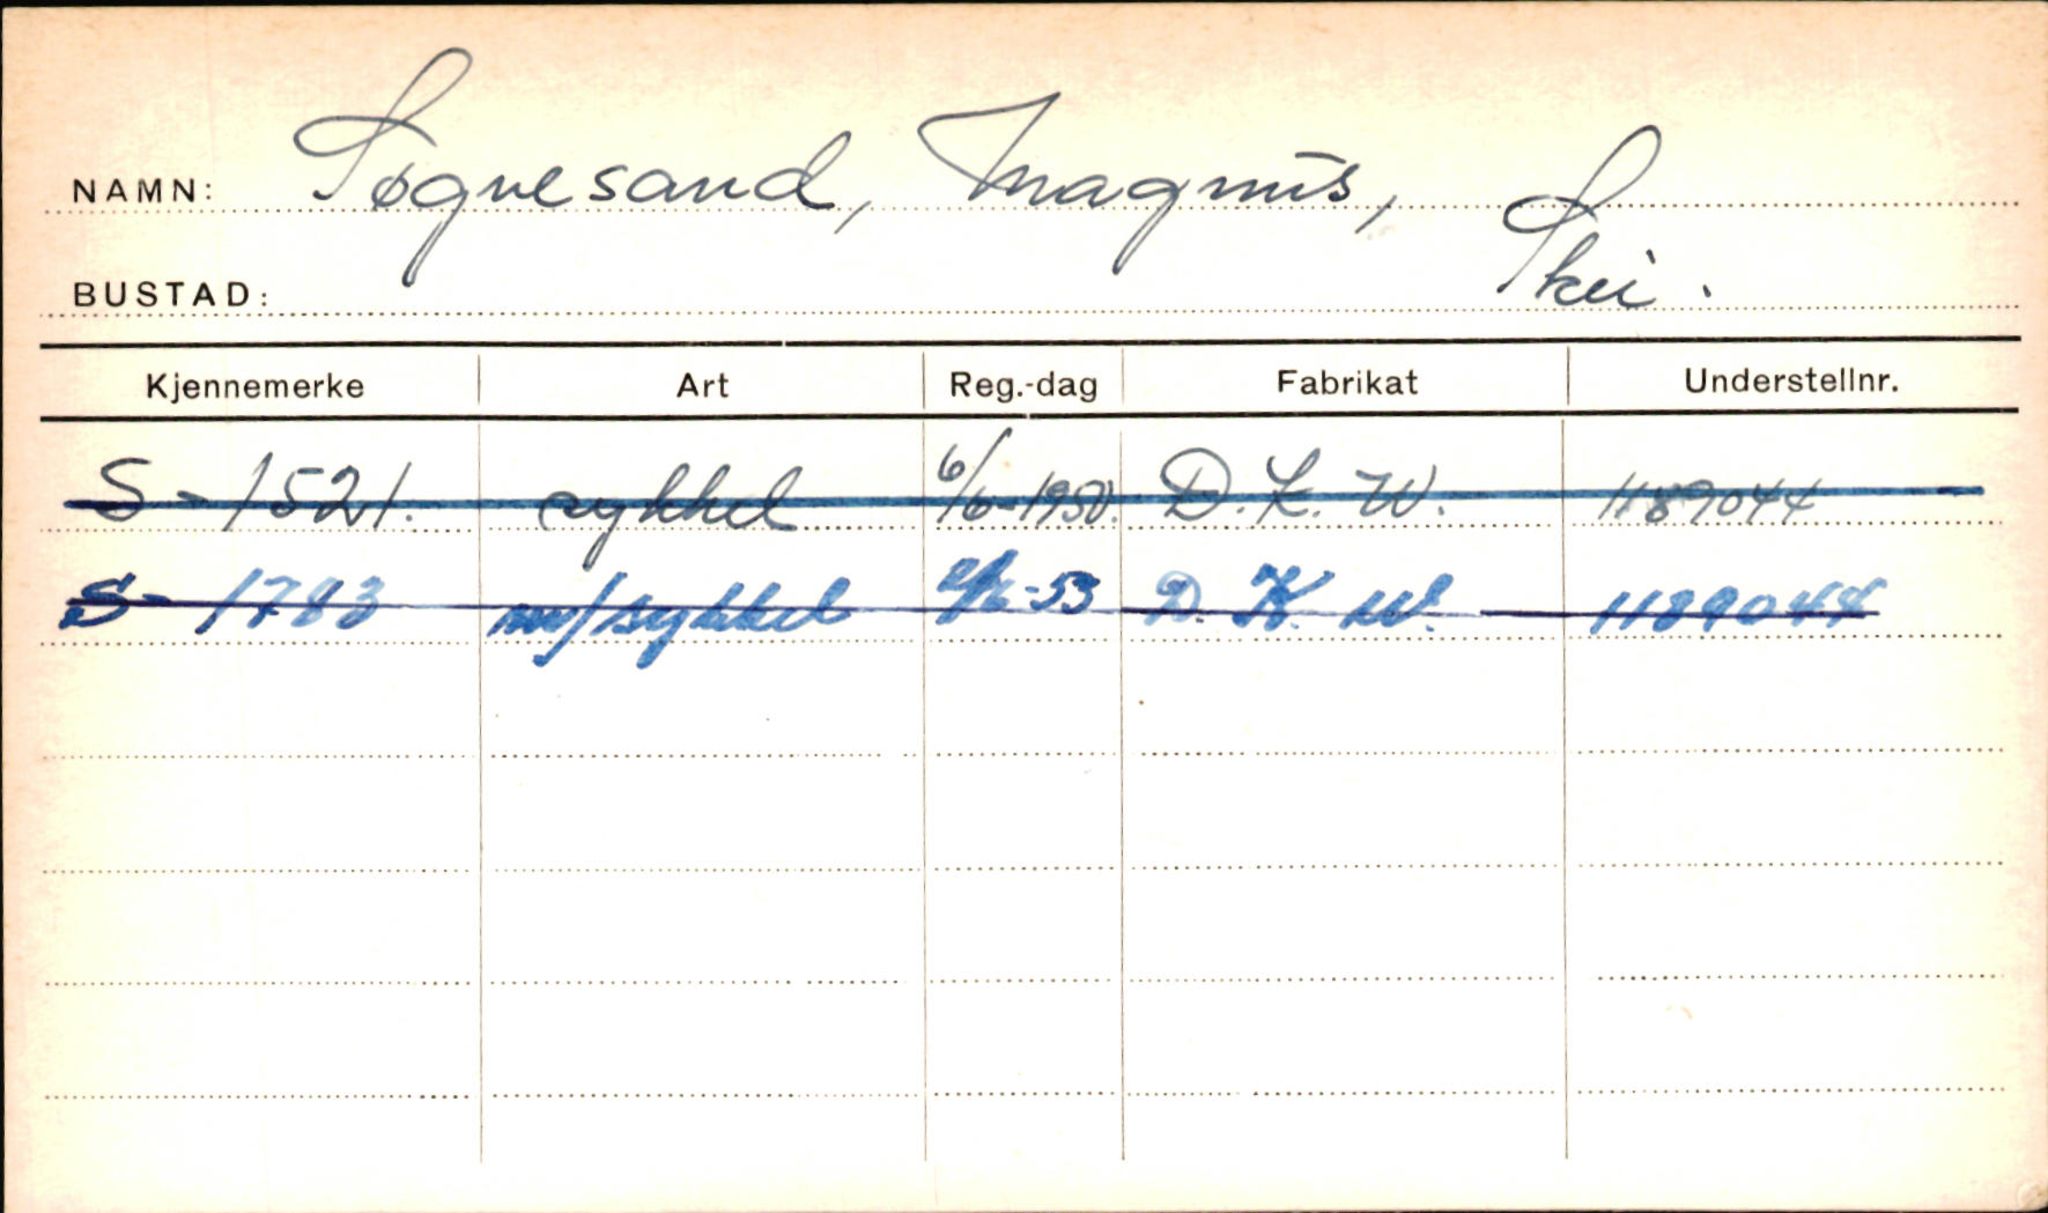 NAMN: Søgnesand, Magnus,
BUSTAD: Skei.
Kjennemerke Art Reg.-dag Fabrikat Understellnr.
S-1521. sykkel 6/6-1950. D.K.W. 1189044
S-1783 m/sykkel 2/6-53 D.K.W. 1189044